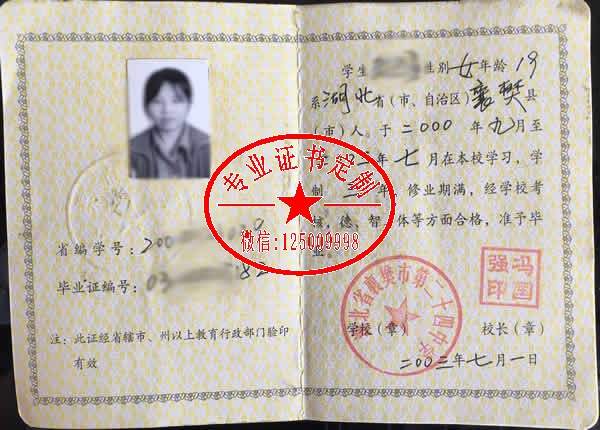 省编学号：200
毕业证编号：03 82
注：此证经省辖市、州以上教育行政部门验印
有效
学生 性别 女 年龄 19
系湖北省（市、自治区）襄樊县
（市）人。于二000年九月至
年七月在本校学习，学
制三年，修业期满，经学校考
核，德、智、体等方面合格，准予毕
业。
学校（章） 校长（章）
二00三年七月一日
北省襄樊市第二十四中学
冯国强印
专业证书定制
微信:125009998